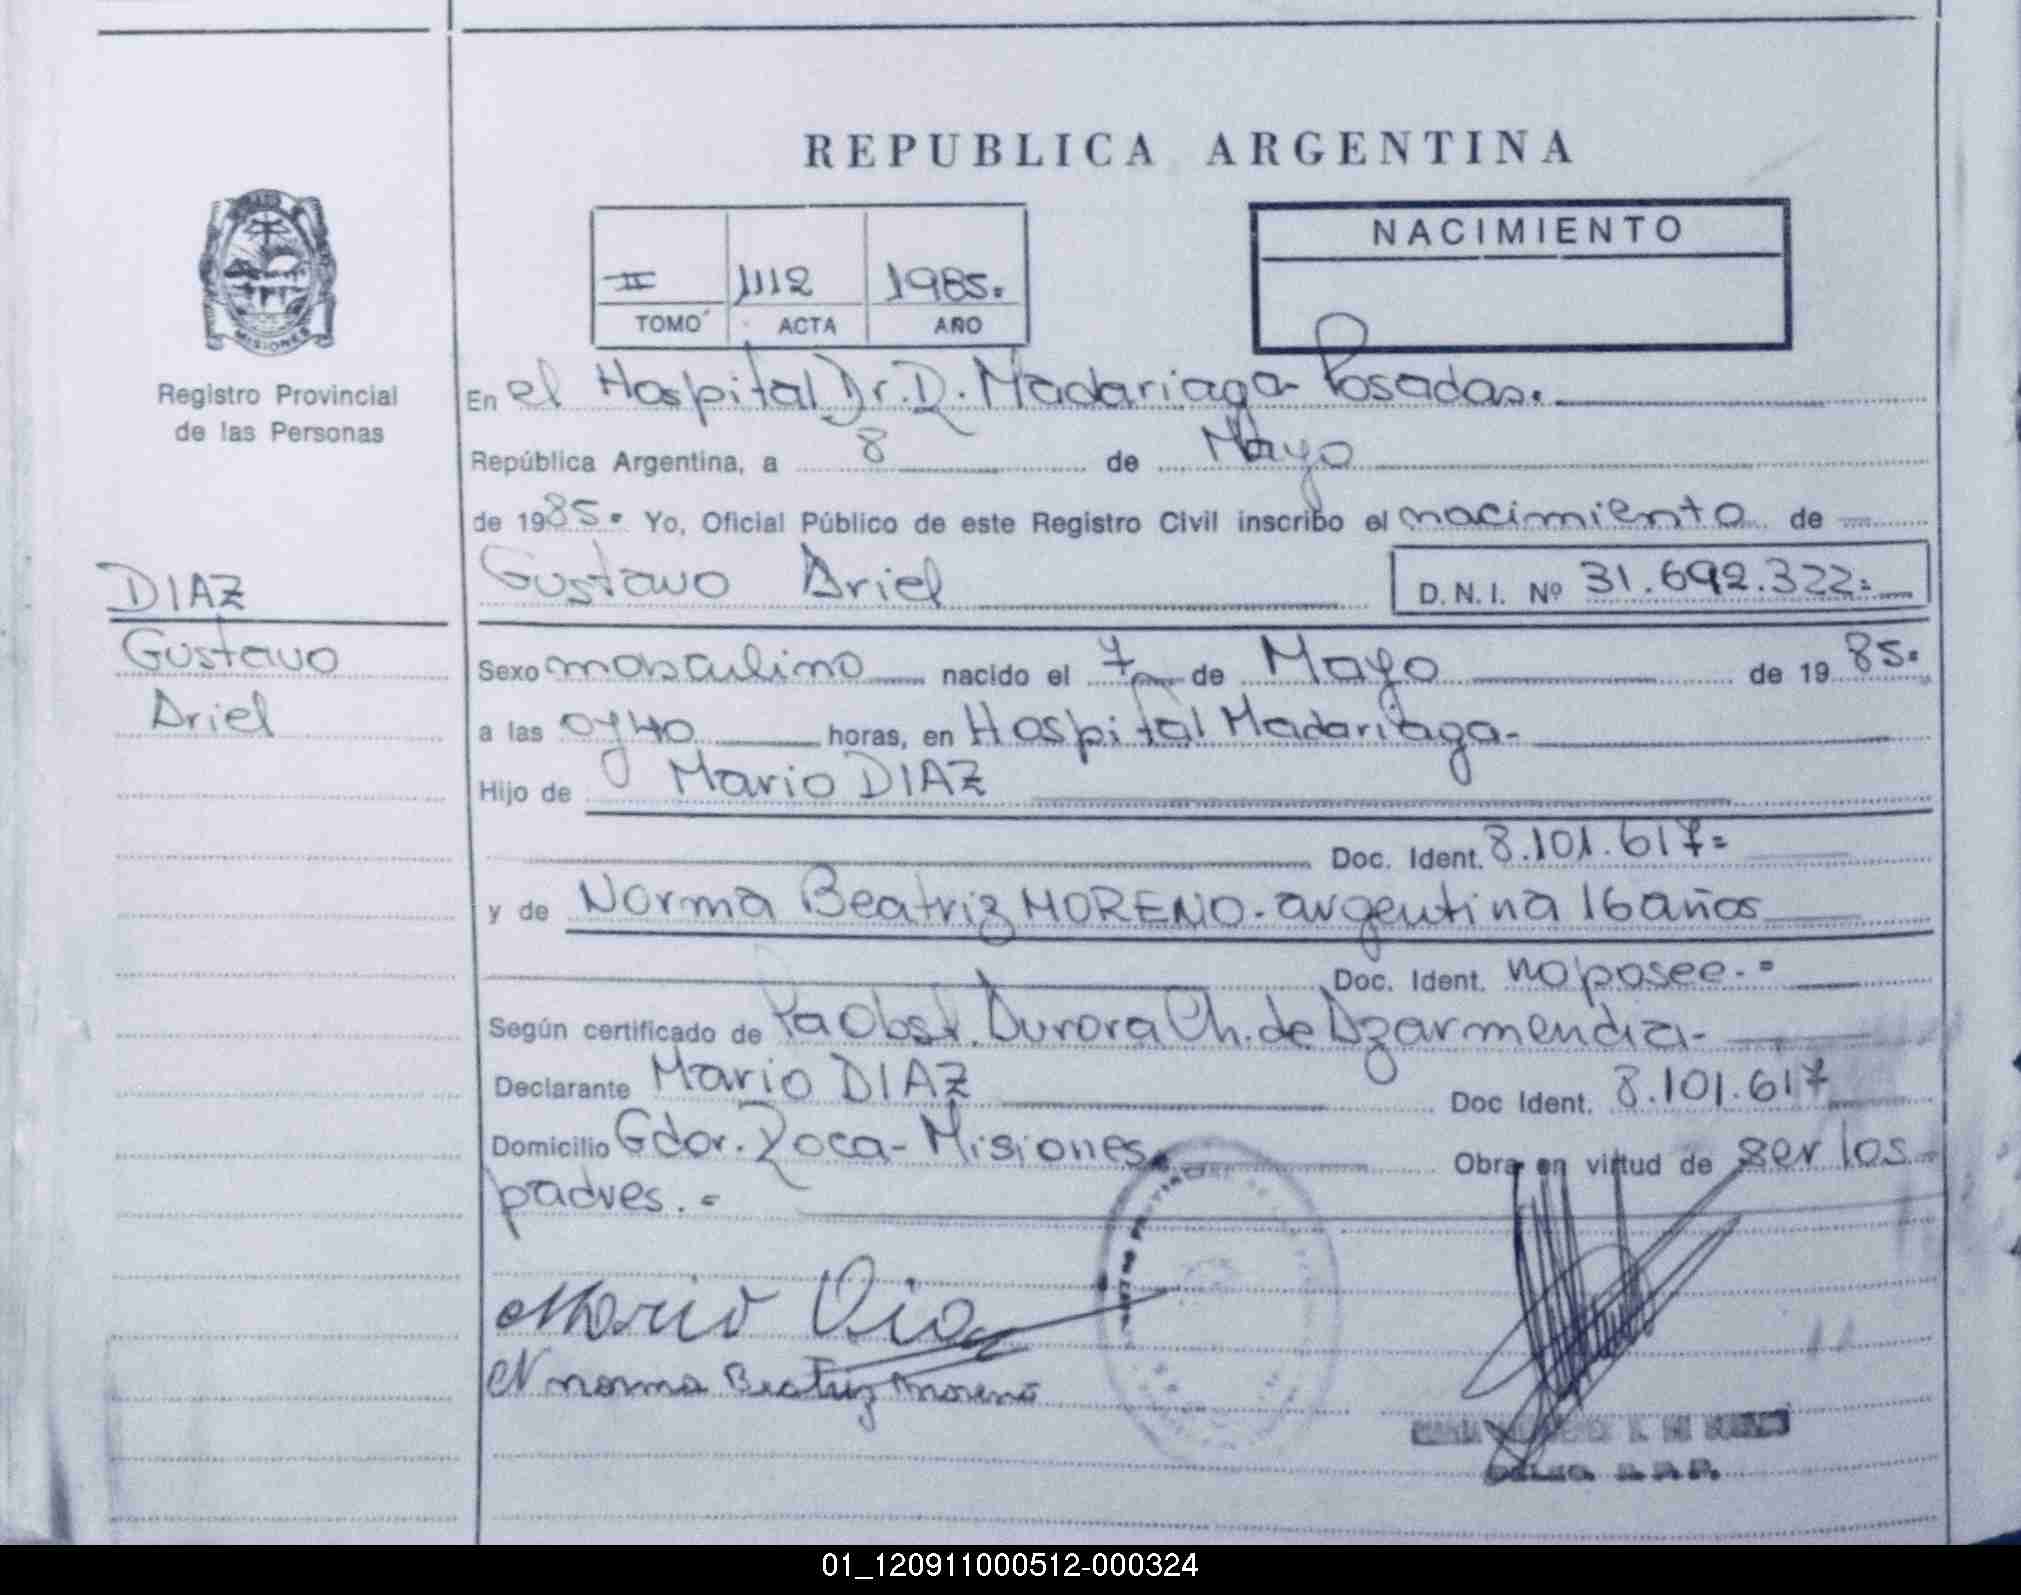 REPUBLICA ARGENTINA
NACIMIENTO
II 1112 1985.
TOMO ACTA AÑO
MISIONES
Registro Provincial
de las Personas
En el Hospital Dr. R. Madariaga- Posadas.
República Argentina, a 8 de Mayo
de 1985. Yo, Oficial Público de este Registro Civil inscribo el nacimiento de
DIAZ
Gustavo Ariel D.N.I. Nº 31.692.322=
Gustavo
Ariel
Sexo masculino nacido el 7 de Mayo de 1985.
a las 0y40 horas, en Hospital Madariaga-
Hijo de Mario DIAZ
Doc. Ident. 8.101.617=
y de Norma Beatriz MORENO- argentina 16 años
Doc. Ident. no posee.=
Según certificado de Pa Obst. Aurora Ch. de Azarmendia-
Declarante Mario DIAZ Doc Ident. 8.101.617
Domicilio Gdor. Roca- Misiones Obra en virtud de ser los
padres.=
Mario Diaz
N norma Beatriz moreno
01_120911000512-000324